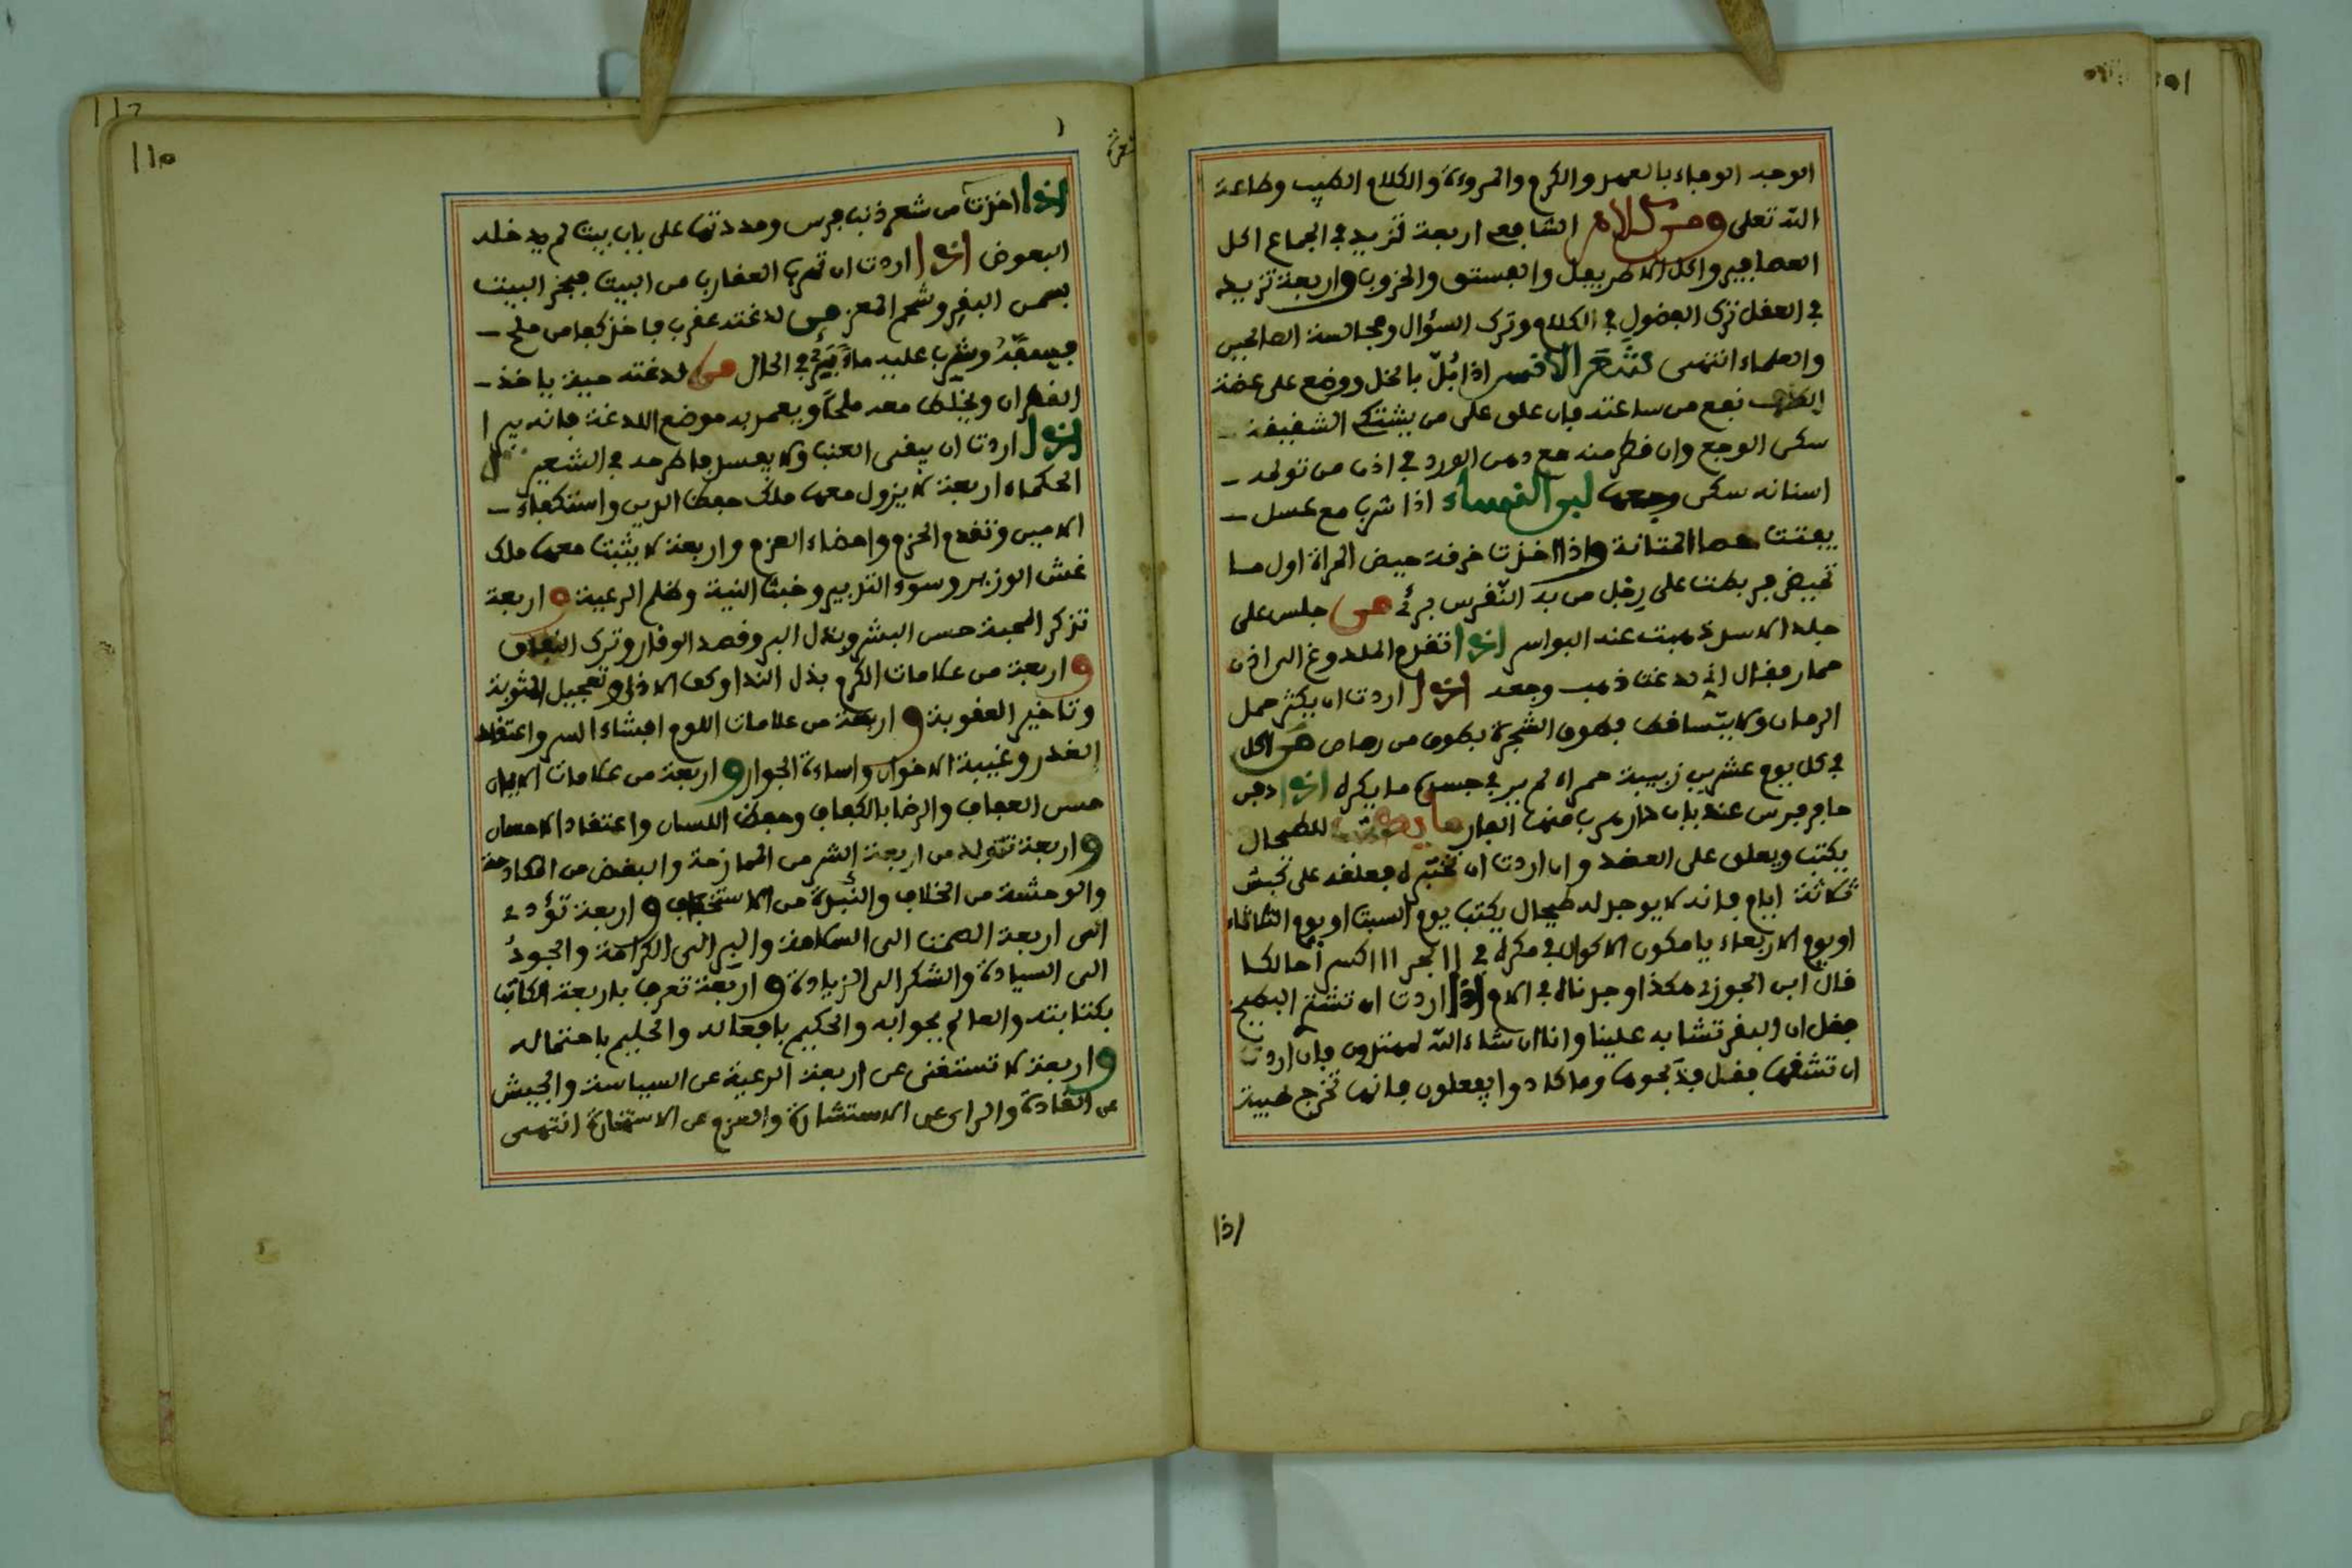 الوجه الوفاء بالعهد والكرم والمروءة والكلام الطيب وطاعة
الله تعلى ومن كلام الشافعي اربعة تزيد في الجماع اكل
العصافير واكل الاطريفل والفستق والخروب واربعة تزيد
في العقل ترك الفضول في الكلام وترك السؤال ومجالسة الصالحين
والعلماء انتهى شعر الانس اذا بُلّ بالخل ووضع على عضة
الكلب نفع من ساعته فان علق على من يشتك الشقيقة
سكن الوجع وان قطر منه مع دهن الورد في اذن من تولد
اسنانه سكن وجعها لبن النساء اذا شرب مع عسل
يفتت حصا المثانة واذا اخذت خرقة حيض المراة اول ما
تحيض فربطت على رجل من به النّقرس برئ من جلس على
جلد الاسد ذهبت عنه البواسر اذا تقدم الملدوغ الى اذن
حمار فقال اني لدغت ذهب وجعه اذا اردت ان يكثر حمل
الرمان ولا يتساقط فطوق الشجرة بطوق من رصاص من اكل
في كل يوم عشرين زبيبة حمراء لم ير في جسده ما يكره اذا دفن
حافر فرس عند باب دار هرب منها الفار للطحال
يكتب ويعلق على العضد وان اردت ان تختبره فعلقه على كبش
ثلاثة ايام فانه لا يوجد له طحال يكتب يوم السبت او يوم الثلاثاء
او يوم الاربعاء
قال ابن الجوزي هكذا وجدناه في الام واذا اردت ان تشتر البطيخ
فقل ان البقر تشابه علينا وانا ان شاء الله لمهتدون فان اردت
ان تشقها فقل فذبحوها وما كادوا يفعلون فانها تخرج طيبة
اذا
اذا اخذت من شعر ذنب فرس ومددتها على باب بيت لم يدخله
البعوض اذا اردت ان تهرب العقارب من البيت فبخر البيت
بسمن البقر وشحم المعز من لدغته عقرب فاخذ كفا من ملح
فسفّه وشرب عليه ماء برئ في الحال من لدغته حية ياخذ
القطران ويخلط معه ملحا ويعمر به موضع اللدغة فانه يبرا
اذا اردت ان يبقى العنب ولا يفسد فاطرحه في الشعير
الحكماء اربعة لا يزول معها ملك حفظ الدين واستكفاء
الامين وتقدم الحزم وامضاء العزم واربعة لا يثبت معها ملك
غش الوزير وسوء التدبير وخبث النية وظلم الرعية واربعة
تذكر المحبة حسن البشر وبذل البر وقصد الوفار وترك النفاق
واربعة من علامات الكرم بذل الندا وكف الاذى وتعجيل المثوبة
وتاخير العقوبة واربعة من علامات اللوم افشاء السر واعتقاد
الغدر وغيبة الاخوان واساءة الجوار واربعة من علامات الايمان
حسن العفاف والرضا بالكفاف وحفظ اللسان واعتقاد الاحسان
واربعة تتولد من اربعة الشر من الممازحة والبغض من المكادحة
والوحشة من الخلاف والنبوة من الاستخفاف واربعة تؤدي
الى اربعة الصمت الى السلامة والبر الى الكرامة والجود
الى السيادة والشكر الى الزيادة واربعة تعرف باربعة الكاتب
بكتابته والعالم بجوابه والحكيم بافعاله والحليم باحتماله
واربعة لا تستغنى عن اربعة الرعية عن السياسة والجيش
عن القادة والراي عن الاستشارة والعزم عن الاستخارة انتهى